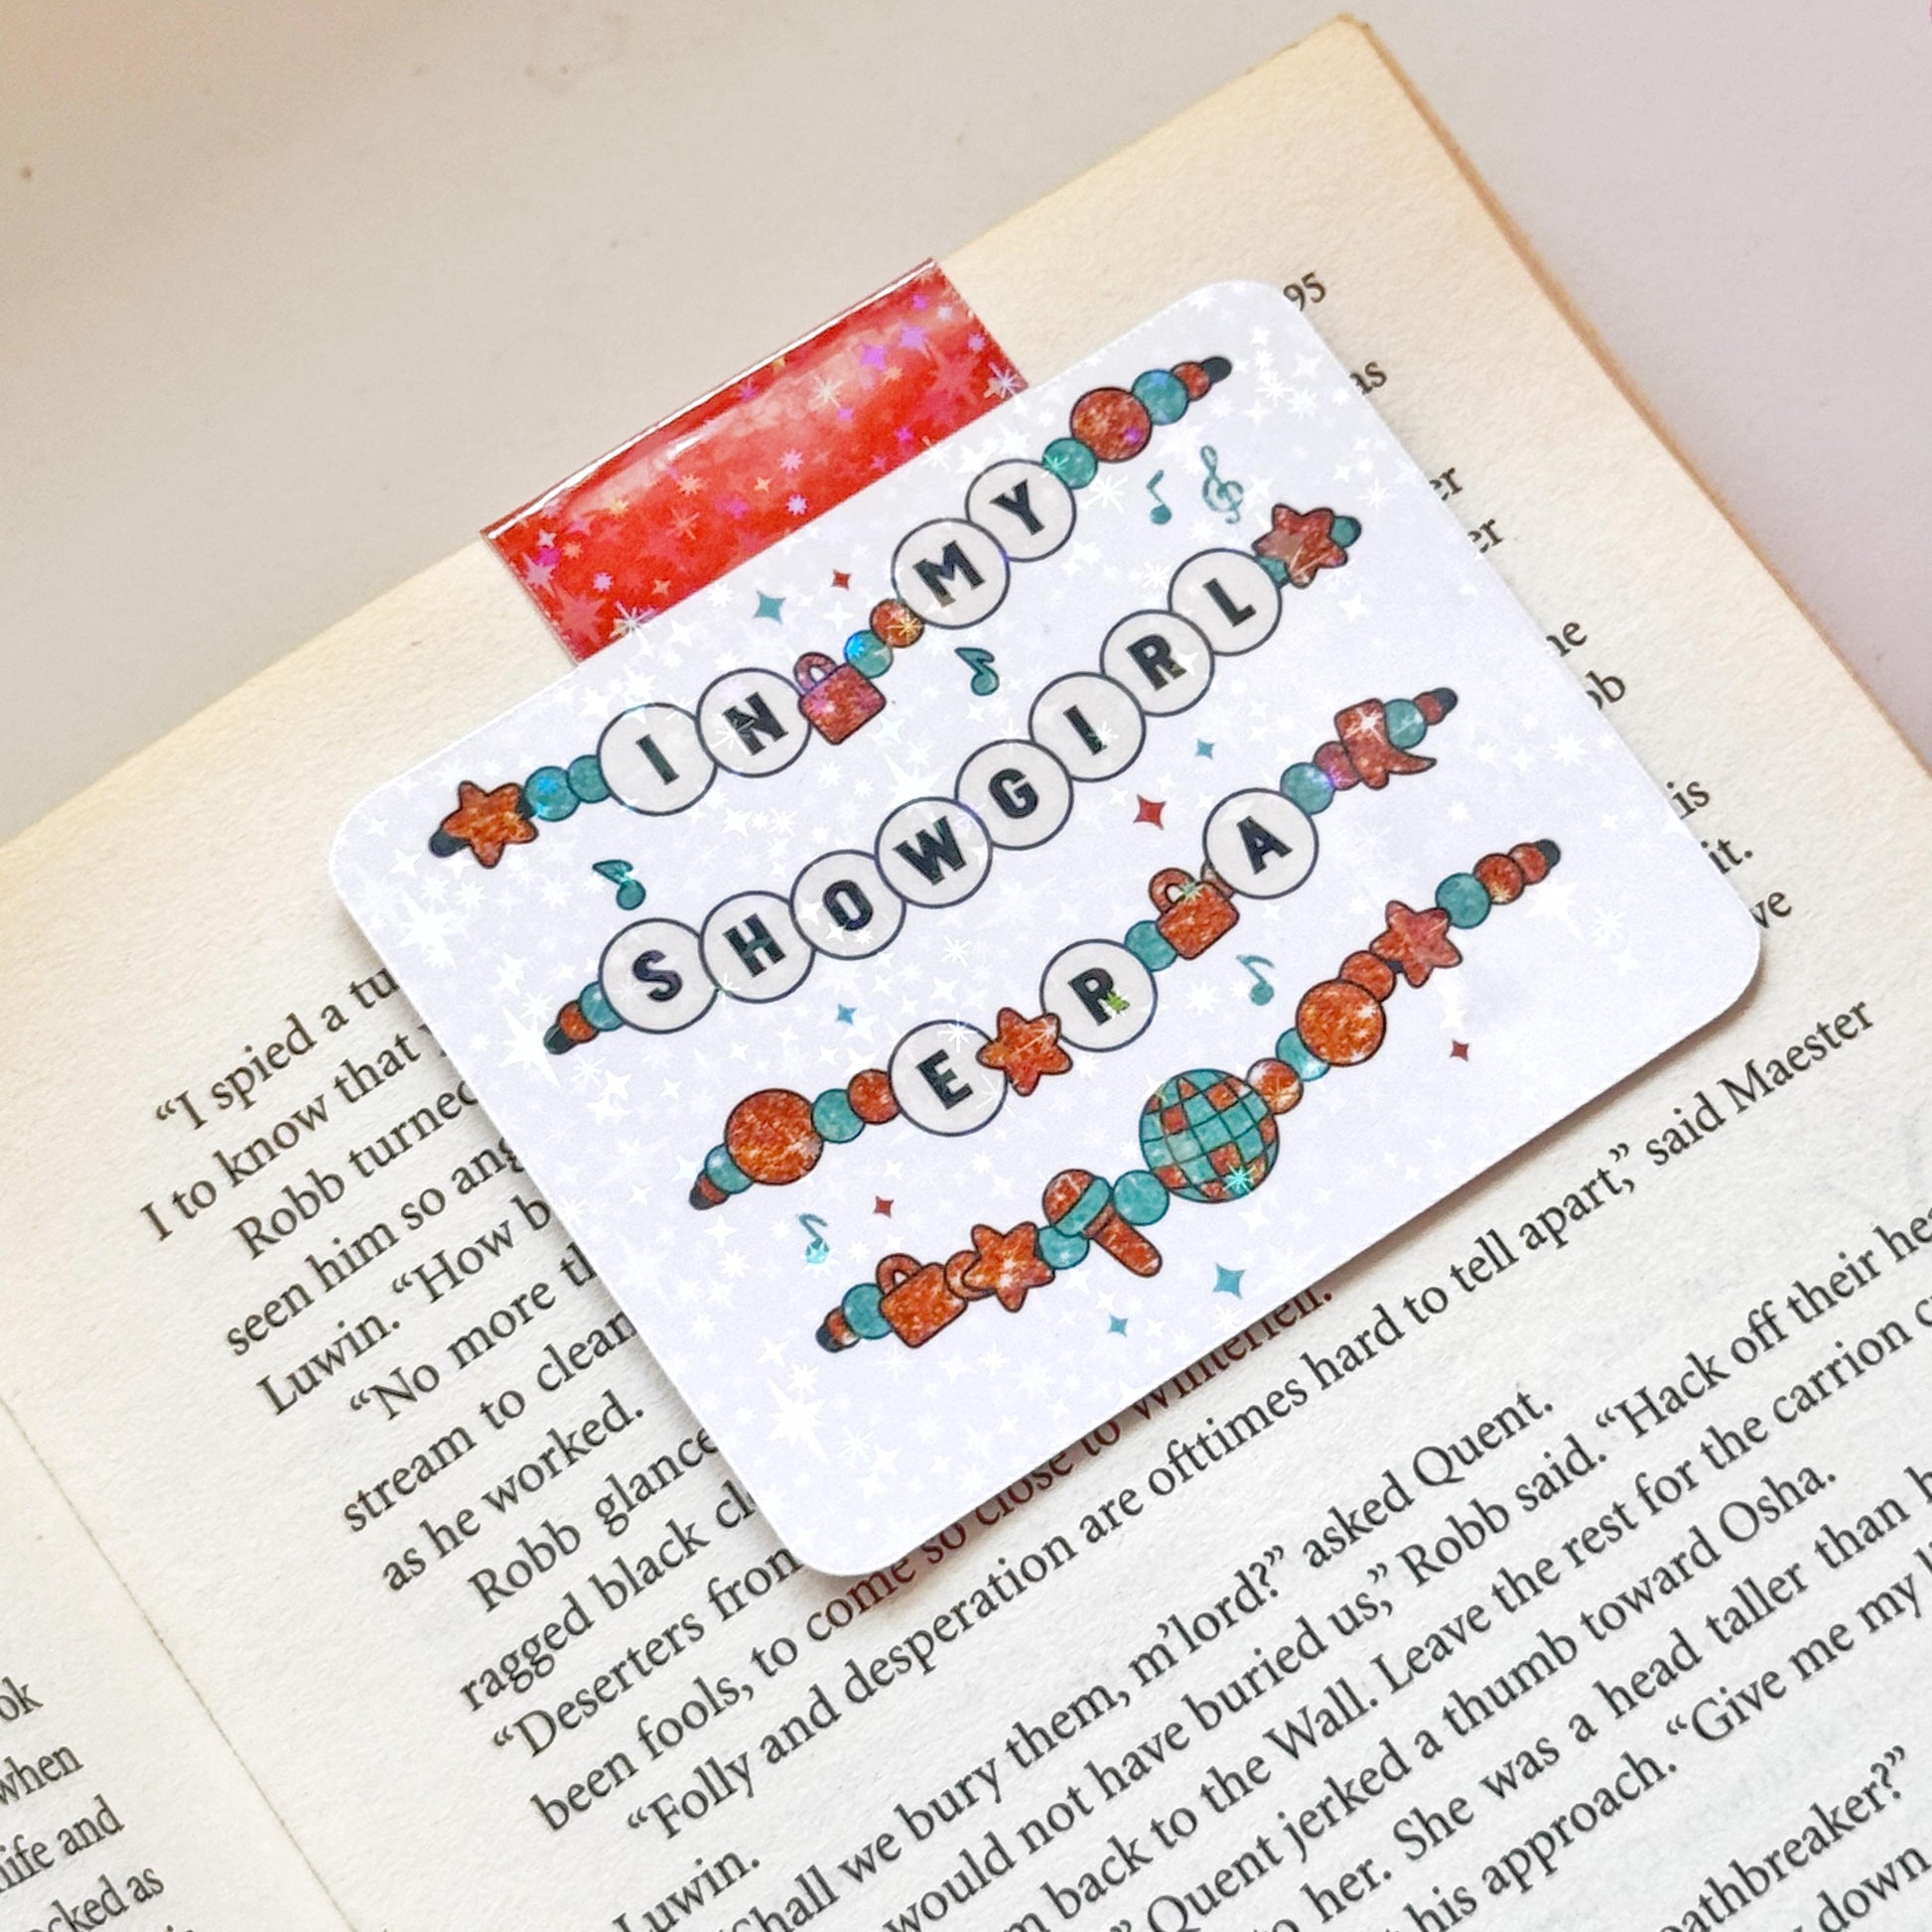 IN MY
SHOWGIRL
ERA
95
as
er
er
he
bb
is
it.
ve
“I spied a tu
I to know that
Robb turned
seen him so ang
Luwin. “How b
“No more th
stream to clean
as he worked.
Robb glance
ragged black cl
“Deserters from
been fools, to come so close to Winterfell.
“Folly and desperation are ofttimes hard to tell apart,” said Maester
Luwin.
“Shall we bury them, m’lord?” asked Quent.
would not have buried us,” Robb said. “Hack off their hea
m back to the Wall. Leave the rest for the carrion c
” Quent jerked a thumb toward Osha.
to her. She was a head taller than h
his approach. “Give me my l
oathbreaker?”
down
ok
when
life and
ocked as